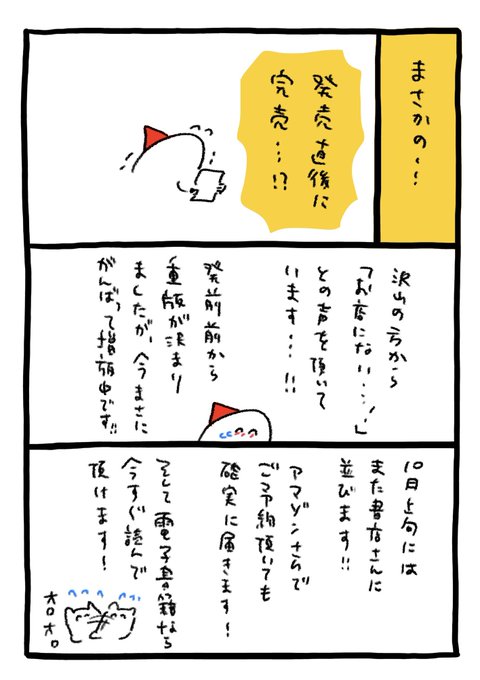 まさかの…!
発売直後に
完売…!?
沢山の方から
「お店にない…!」
との声を頂いて
います…!!
発売前から
重版が決まり
ましたが、今まさに
がんばって増刷中です!!
10月上旬には
また書店さんに
並びます!!
アマゾンさんで
ご予約頂いても
確実に届きます!
そして電子書籍なら
今すぐ読んで
頂けます!
オロオロ